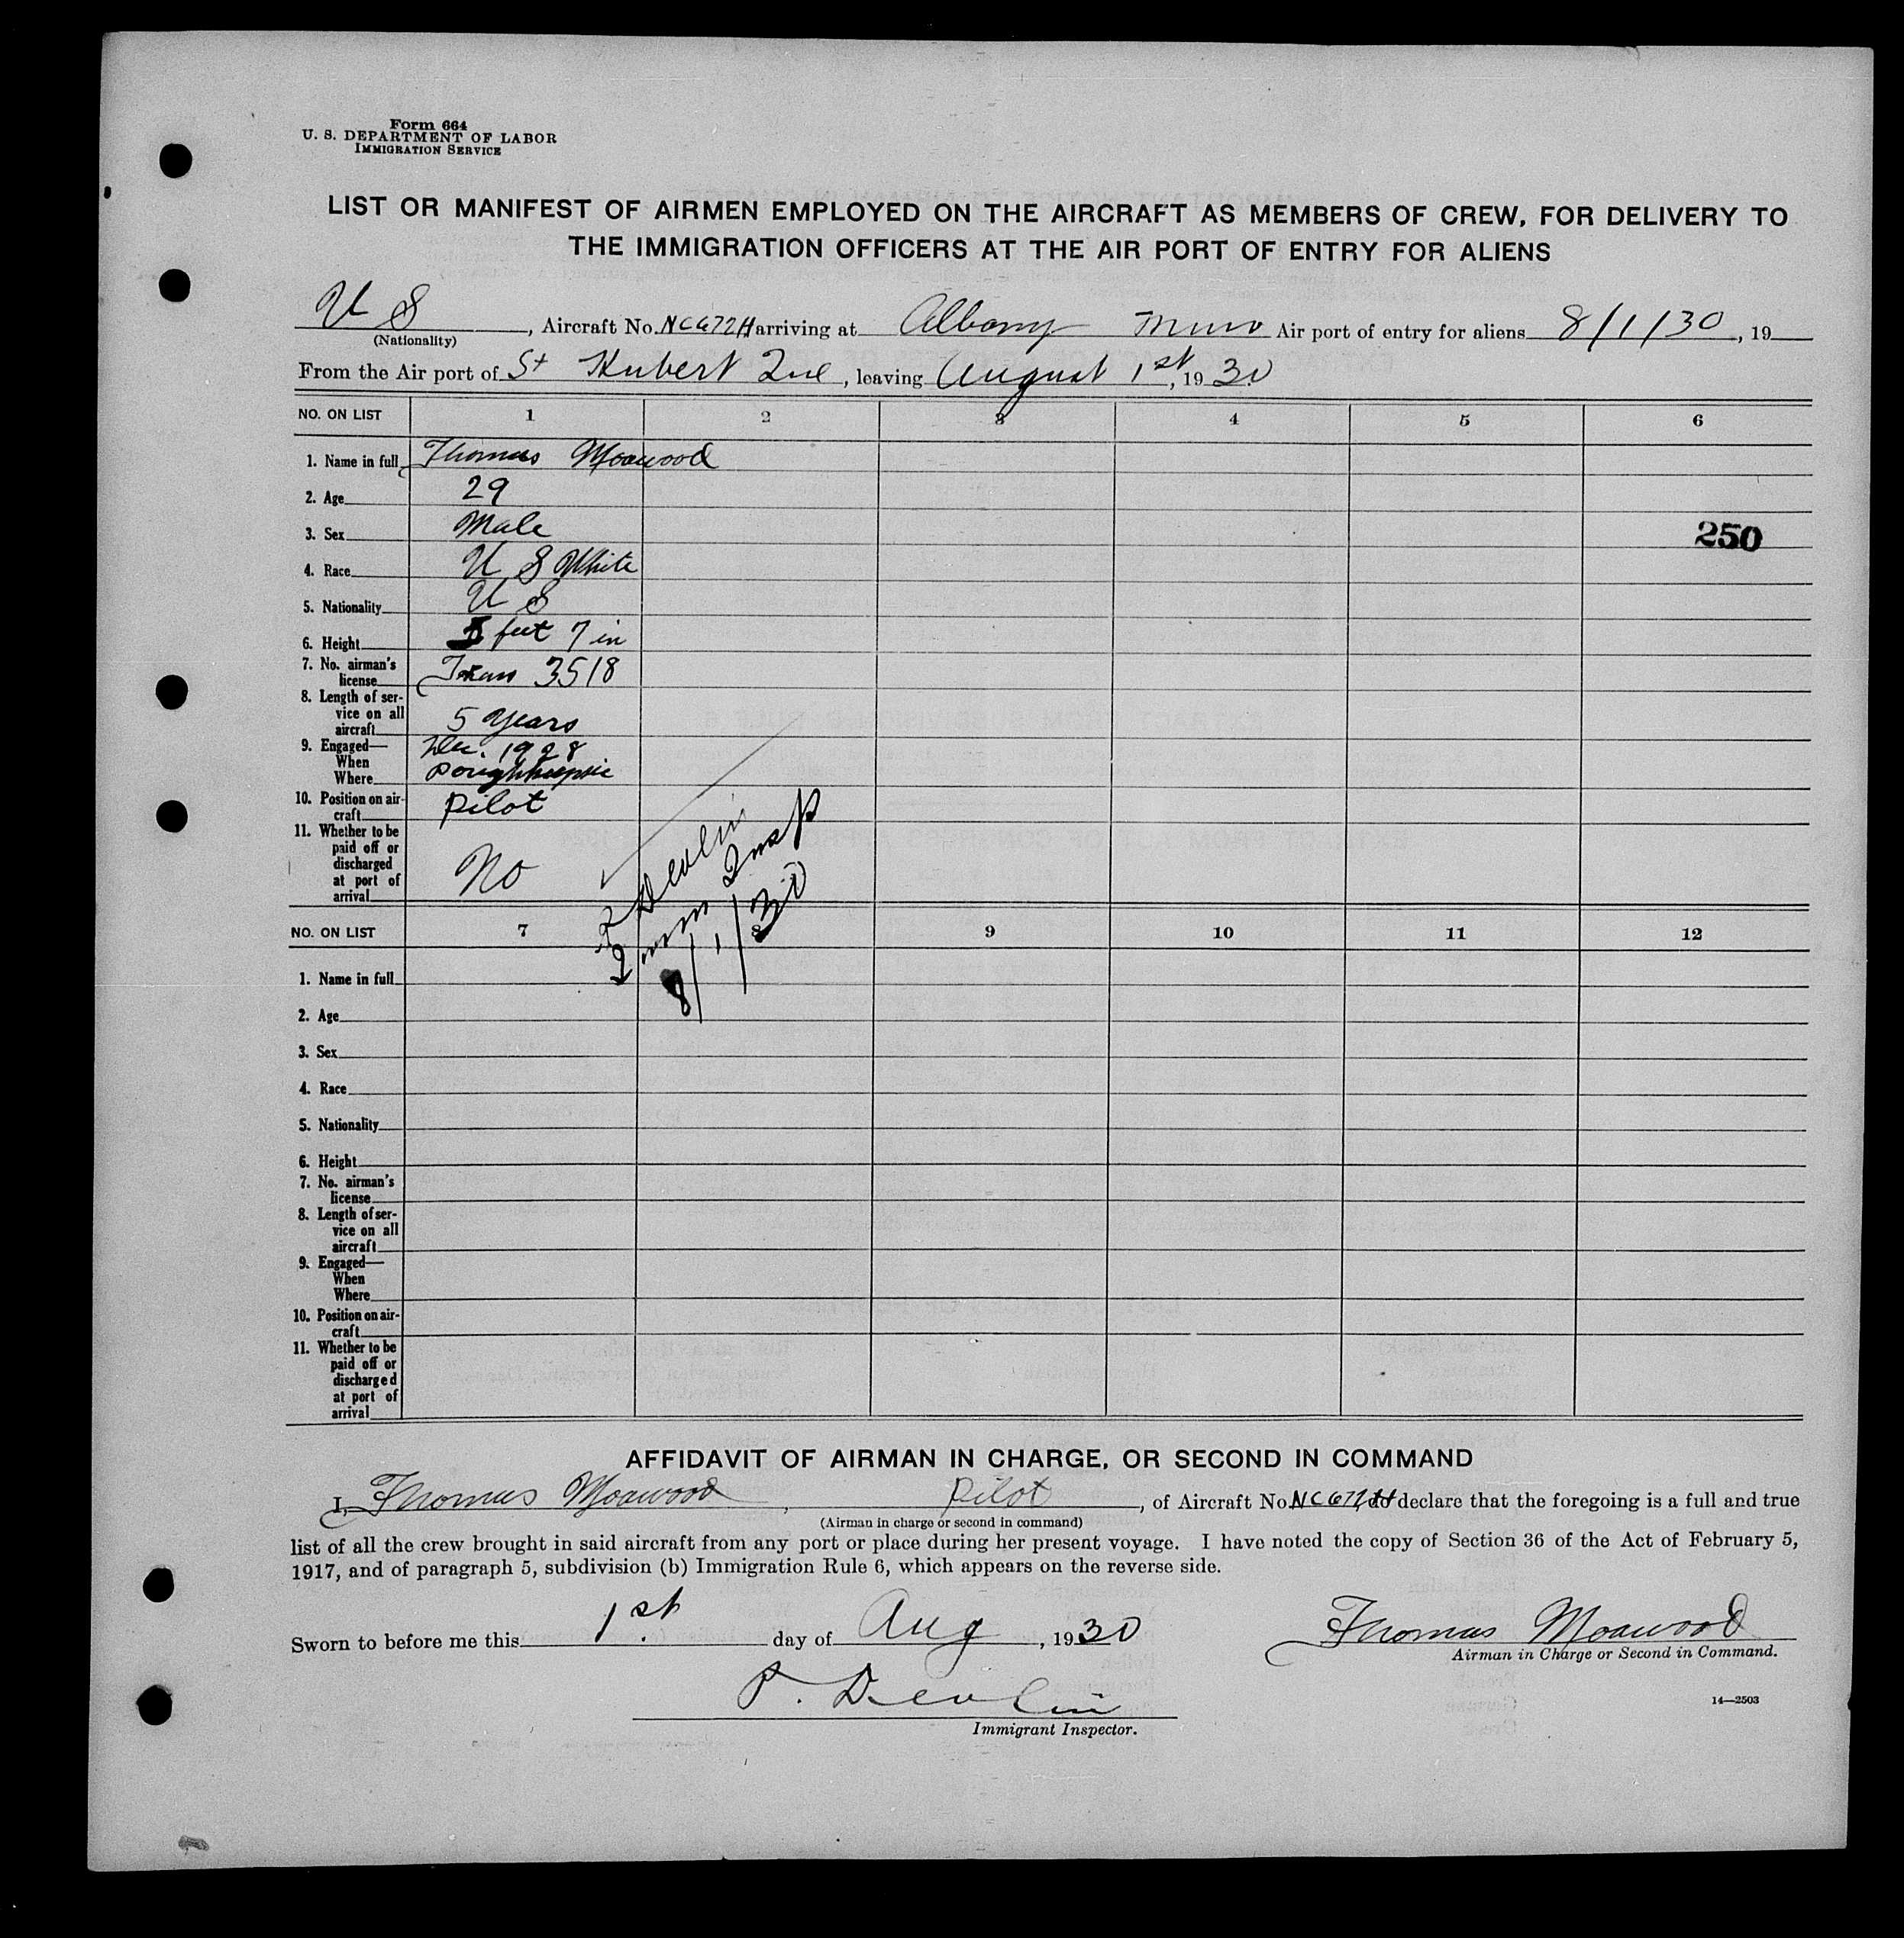 Form 664
U. S. DEPARTMENT OF LABOR
IMMIGRATION SERVICE
LIST OR MANIFEST OF AIRMEN EMPLOYED ON THE AIRCRAFT AS MEMBERS OF CREW, FOR DELIVERY TO
THE IMMIGRATION OFFICERS AT THE AIR PORT OF ENTRY FOR ALIENS
U S, Aircraft No. NC672H arriving at Albany Air port of entry for aliens 8/1/30, 19
(Nationality)
From the Air port of St Hubert Que, leaving August 1st, 19 30
NO. ON LIST 1 2 3 4 5 6
1. Name in full Thomas
2. Age 29
3. Sex Male
250
4. Race U S White
5. Nationality U S
6. Height 5 feet 7 in
7. No. airman's
license 3518
8. Length of ser-
vice on all
aircraft 5 Years
9. Engaged—
When Dec. 1928
Where Poughkeepsie
10. Position on air-
craft Pilot
11. Whether to be
paid off or
discharged
at port of
arrival No
P Devlin
Imm Insp
8/1/30
NO. ON LIST 7 8 9 10 11 12
1. Name in full
2. Age
3. Sex
4. Race
5. Nationality
6. Height
7. No. airman's
license
8. Length of ser-
vice on all
aircraft
9. Engaged—
When
Where
10. Position on air-
craft
11. Whether to be
paid off or
discharged
at port of
arrival
AFFIDAVIT OF AIRMAN IN CHARGE, OR SECOND IN COMMAND
I, Thomas, Pilot, of Aircraft No. NC672H do declare that the foregoing is a full and true
(Airman in charge or second in command)
list of all the crew brought in said aircraft from any port or place during her present voyage. I have noted the copy of Section 36 of the Act of February 5,
1917, and of paragraph 5, subdivision (b) Immigration Rule 6, which appears on the reverse side.
Sworn to before me this 1st. day of Aug, 19 30
Thomas
Airman in Charge or Second in Command.
P. Devlin
Immigrant Inspector.
14—2503